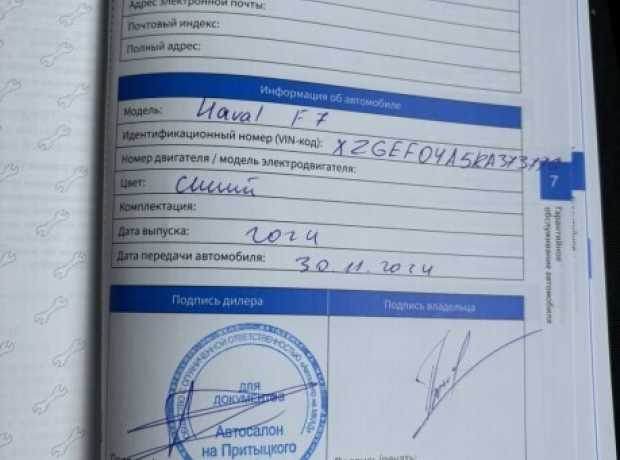 Адрес электронной почты:
Почтовый индекс:
Полный адрес:
Информация об автомобиле
Модель: Haval F7
Идентификационный номер (VIN-код):
Номер двигателя / модель электродвигателя:
Цвет: синий
Комплектация:
Дата выпуска: 2024
Дата передачи автомобиля: 30.11.2024
7
Гарантийное
обслуживание автомобиля
Подпись дилера
Подпись владельца
ОГРАНИЧЕННОЙ ОТВЕТСТВЕННОСТЬЮ
ДЛЯ
ДОКУМЕНТОВ
Автосалон
на Притыцкого